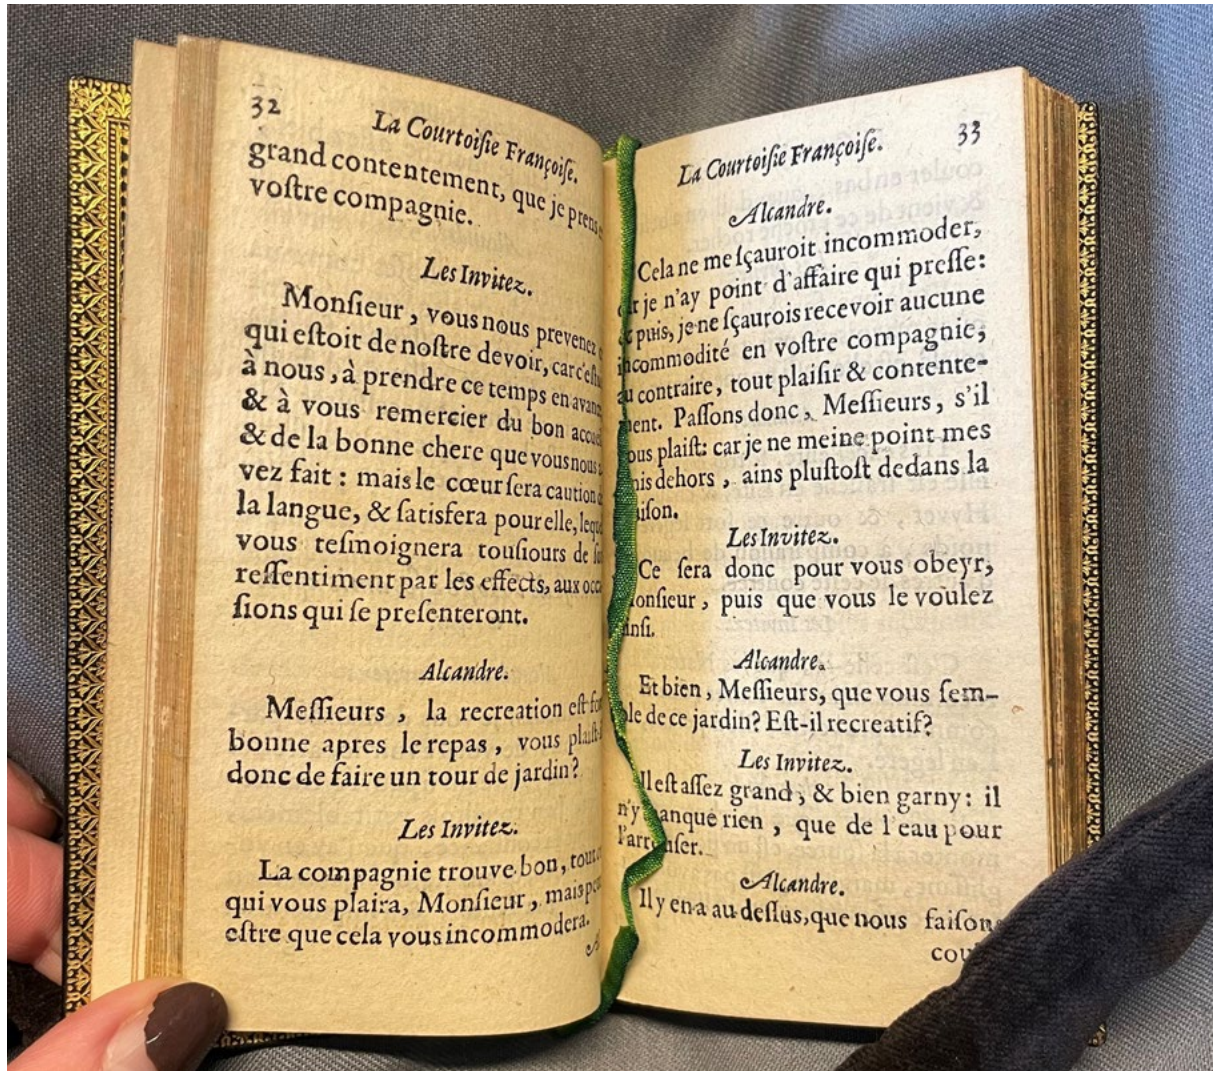 32
La Courtoiſie Françoiſe.
grand contentement, que je prens
voſtre compagnie.
Les Invitez.
Monſieur, vous nous prevenez
qui eſtoit de noſtre devoir, car c'eſt
à nous, à prendre ce temps en
& à vous remercier du bon
& de la bonne chere que vous nous
vez fait : mais le cœur ſera caution
la langue, & ſatisfera pour elle,
vous teſmoignera touſiours de
reſſentiment par les effects, aux
ſions qui ſe preſenteront.
Alcandre.
Meſſieurs, la recreation eſt
bonne apres le repas, vous
donc de faire un tour de jardin?
Les Invitez.
La compagnie trouve bon,
qui vous plaira, Monſieur, mais
eſtre que cela vous incommodera.
33
La Courtoiſie Françoiſe.
Alcandre.
Cela ne me ſçauroit incommoder,
je n'ay point d'affaire qui preſſe:
puis, je ne ſçaurois recevoir aucune
incommodité en voſtre compagnie,
au contraire, tout plaiſir & contente-
ment. Paſſons donc, Meſſieurs, s'il
plaiſt: car je ne meine point mes
dehors, ains pluſtoſt dedans la
Les Invitez.
Ce ſera donc pour vous obeyr,
puis que vous le voulez
Alcandre.
Et bien, Meſſieurs, que vous ſem-
ble de ce jardin? Eſt-il recreatif?
Les Invitez.
Il eſt aſſez grand, & bien garny: il
n'y manque rien, que de l'eau pour
Alcandre.
Il y en a au deſſus, que nous faiſons